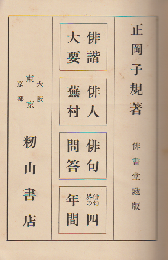 正岡子規著
俳書堂
俳諧
大要
俳人
蕪村
俳句
問答
四
年間
大阪
東京
京都
籾山書店